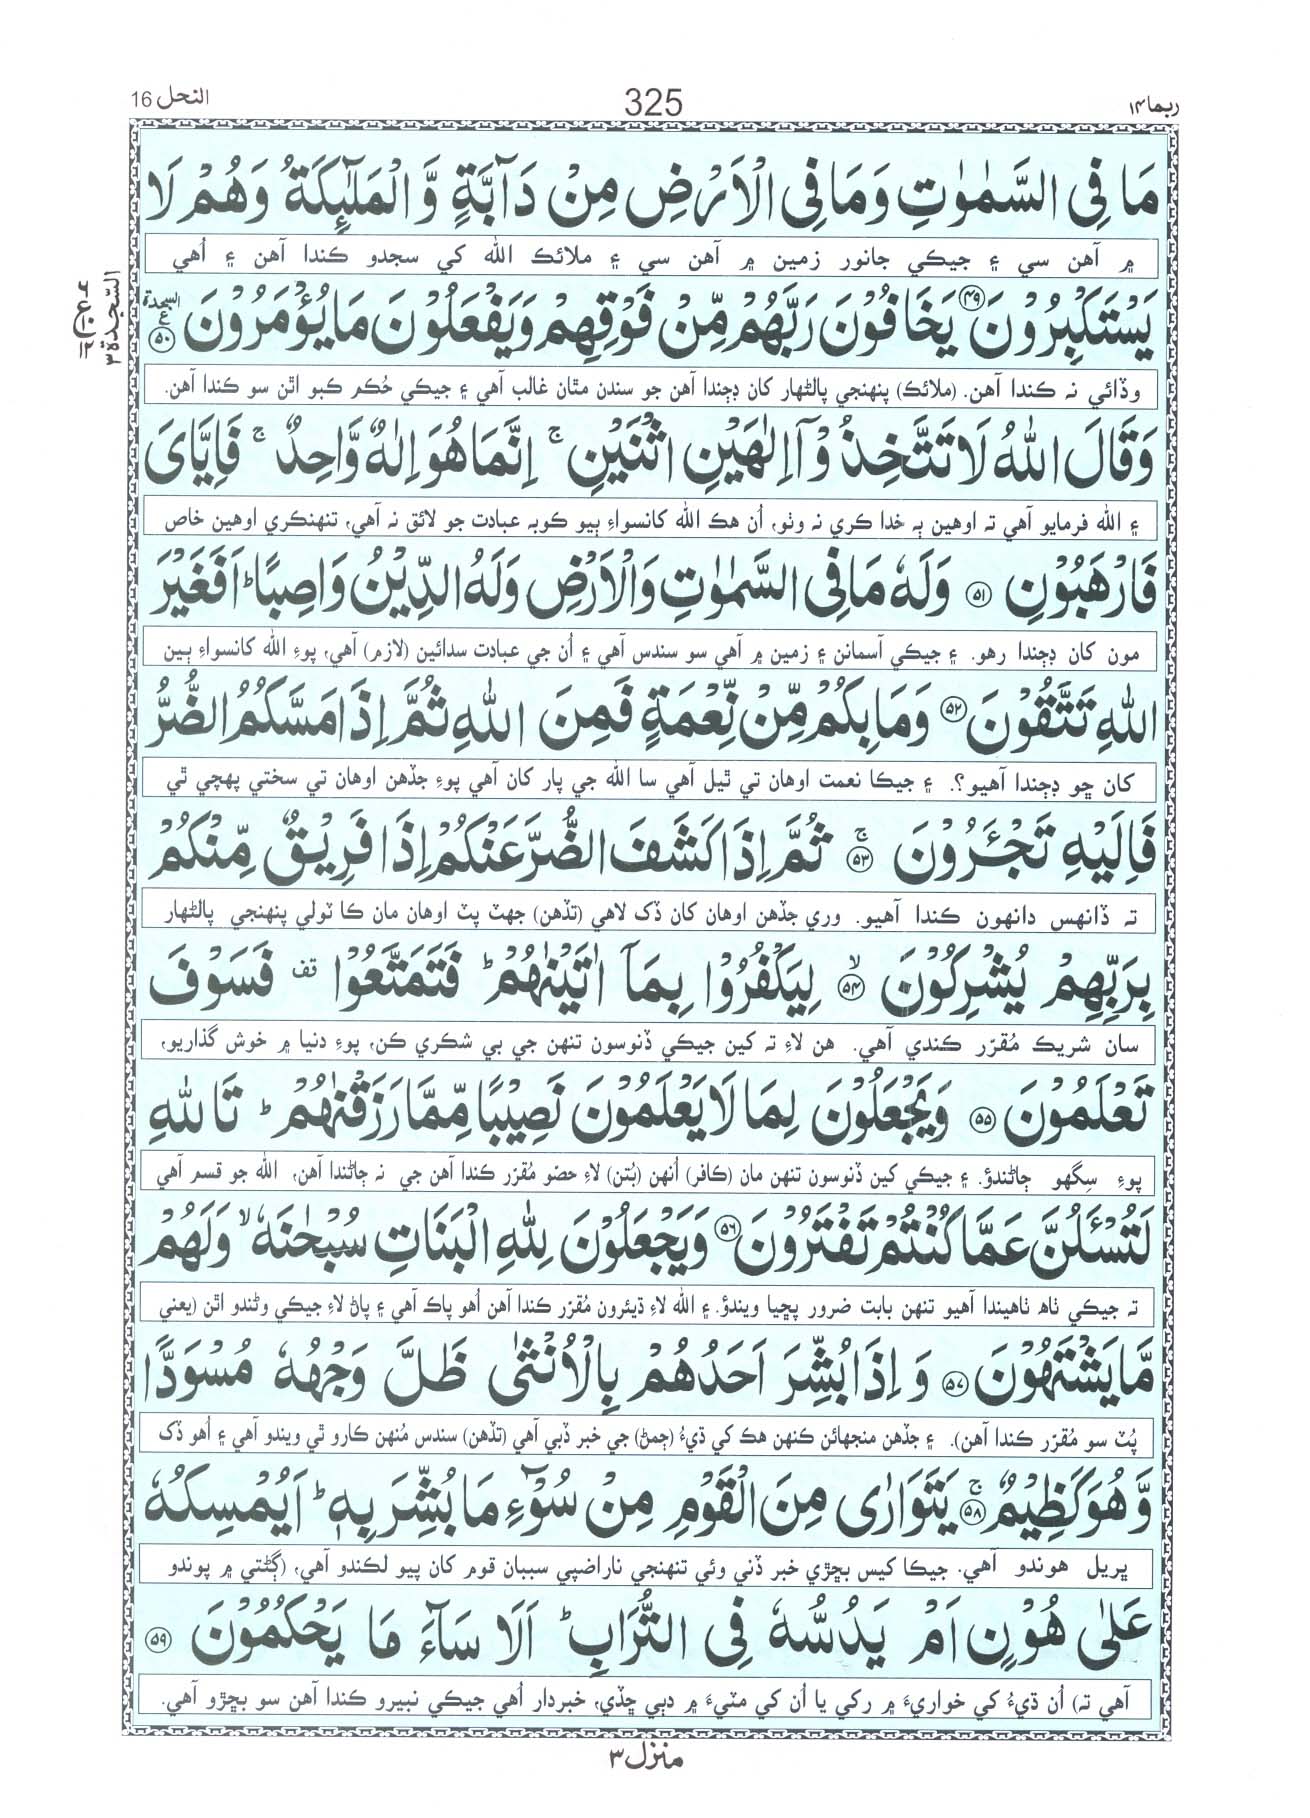 ربما ۱۴ 325 النحل 16
مَا فِی السَّمٰوٰتِ وَمَا فِی الْاَرْضِ مِنْ دَآبَّةٍ وَّ الْمَلٰٓئِكَةُ وَهُمْ لَا
۾ آهن سي ۽ جيڪي جانور زمين ۾ آهن سي ۽ ملائڪ الله کي سجدو ڪندا آهن ۽ اُهي
یَسْتَكْبِرُوْنَ ﴿۴۹﴾ یَخَافُوْنَ رَبَّهُمْ مِّنْ فَوْقِهِمْ وَیَفْعَلُوْنَ مَا یُؤْمَرُوْنَ ﴿۵۰﴾ السجدة
السّجدة ۳
وڏائي نہ ڪندا آهن. (ملائڪ) پنهنجي پالڻهار کان ڊڄندا آهن جو سندن مٿان غالب آهي ۽ جيڪي حُڪم ڪبو اٿن سو ڪندا آهن.
وَقَالَ اللهُ لَا تَتَّخِذُوْۤا اِلٰهَیْنِ اثْنَیْنِ ۚ اِنَّمَا هُوَ اِلٰهٌ وَّاحِدٌ ۚ فَاِیَّایَ
۽ الله فرمايو آهي تہ اوهين ٻہ خدا ڪري نہ وٺو، اُن هڪ الله کانسواءِ ٻيو ڪوبہ عبادت جو لائق نہ آهي، تنهنڪري اوهين خاص
فَارْهَبُوْنِ ﴿۵۱﴾ وَلَهٗ مَا فِی السَّمٰوٰتِ وَالْاَرْضِ وَلَهُ الدِّیْنُ وَاصِبًا ؕ اَفَغَیْرَ
مون کان ڊڄندا رهو. ۽ جيڪي آسمانن ۽ زمين ۾ آهي سو سندس آهي ۽ اُن جي عبادت سدائين (لازم) آهي، پوءِ الله کانسواءِ ٻين
اللهِ تَتَّقُوْنَ ﴿۵۲﴾ وَمَا بِكُمْ مِّنْ نِّعْمَةٍ فَمِنَ اللهِ ثُمَّ اِذَا مَسَّكُمُ الضُّرُّ
کان ڇو ڊڄندا آهيو؟. ۽ جيڪا نعمت اوهان تي ٿيل آهي سا الله جي پار کان آهي پوءِ جڏهن اوهان تي سختي پهچي ٿي
فَاِلَیْهِ تَجْـَٔرُوْنَ ﴿۵۳﴾ ۚ ثُمَّ اِذَا كَشَفَ الضُّرَّ عَنْكُمْ اِذَا فَرِیْقٌ مِّنْكُمْ
تہ ڏانهس دانهون ڪندا آهيو. وري جڏهن اوهان کان ڏک لاهي (تڏهن) جهٽ پٽ اوهان مان ڪا ٽولي پنهنجي پالڻهار
بِرَبِّهِمْ یُشْرِكُوْنَ ﴿۵۴﴾ ۙ لِیَكْفُرُوْا بِمَاۤ اٰتَیْنٰهُمْ ؕ فَتَمَتَّعُوْا ۫ قف فَسَوْفَ
سان شريڪ مُقرّر ڪندي آهي. هن لاءِ تہ کين جيڪي ڏنوسون تنهن جي بي شڪري ڪن، پوءِ دنيا ۾ خوش گذاريو،
تَعْلَمُوْنَ ﴿۵۵﴾ وَیَجْعَلُوْنَ لِمَا لَا یَعْلَمُوْنَ نَصِیْبًا مِّمَّا رَزَقْنٰهُمْ ؕ تَاللهِ
پوءِ سِگهو ڄاڻندؤ. ۽ جيڪي کين ڏنوسون تنهن مان (ڪافر) اُنهن (بُتن) لاءِ حصو مُقرّر ڪندا آهن جي نہ ڄاڻندا آهن، الله جو قسم آهي
لَتُسْـَٔلُنَّ عَمَّا كُنْتُمْ تَفْتَرُوْنَ ﴿۵۶﴾ وَیَجْعَلُوْنَ لِلّٰهِ الْبَنَاتِ سُبْحٰنَهٗ ۙ وَلَهُمْ
تہ جيڪي ٺاھ ٺاهيندا آهيو تنهن بابت ضرور پڇيا ويندؤ. ۽ الله لاءِ ڌيئرون مُقرّر ڪندا آهن اُهو پاڪ آهي ۽ پاڻ لاءِ جيڪي وڻندو اٿن (يعني
مَّا یَشْتَهُوْنَ ﴿۵۷﴾ وَ اِذَا بُشِّرَ اَحَدُهُمْ بِالْاُنْثٰی ظَلَّ وَجْهُهٗ مُسْوَدًّا
پُٽ سو مُقرّر ڪندا آهن). ۽ جڏهن منجهائن ڪنهن هڪ کي ڌيءُ (ڄمڻ) جي خبر ڏبي آهي (تڏهن) سندس مُنهن ڪارو ٿي ويندو آهي ۽ اُهو ڏک
وَّهُوَ كَظِیْمٌ ﴿۵۸﴾ ۚ یَتَوَارٰی مِنَ الْقَوْمِ مِنْ سُوْٓءِ مَا بُشِّرَ بِهٖ ؕ اَیُمْسِكُهٗ
ڀريل هوندو آهي. جيڪا کيس بڇڙي خبر ڏني وئي تنهنجي ناراضپي سببان قوم کان پيو لڪندو آهي، (ڳڻتي ۾ پوندو
عَلٰی هُوْنٍ اَمْ یَدُسُّهٗ فِی التُّرَابِ ؕ اَلَا سَآءَ مَا یَحْكُمُوْنَ ﴿۵۹﴾
آهي تہ) اُن ڌيءُ کي خواريءَ ۾ رکي يا اُن کي مٽيءَ ۾ دٻي ڇڏي، خبردار اُهي جيڪي نبيرو ڪندا آهن سو بڇڙو آهي.
منزل ۳